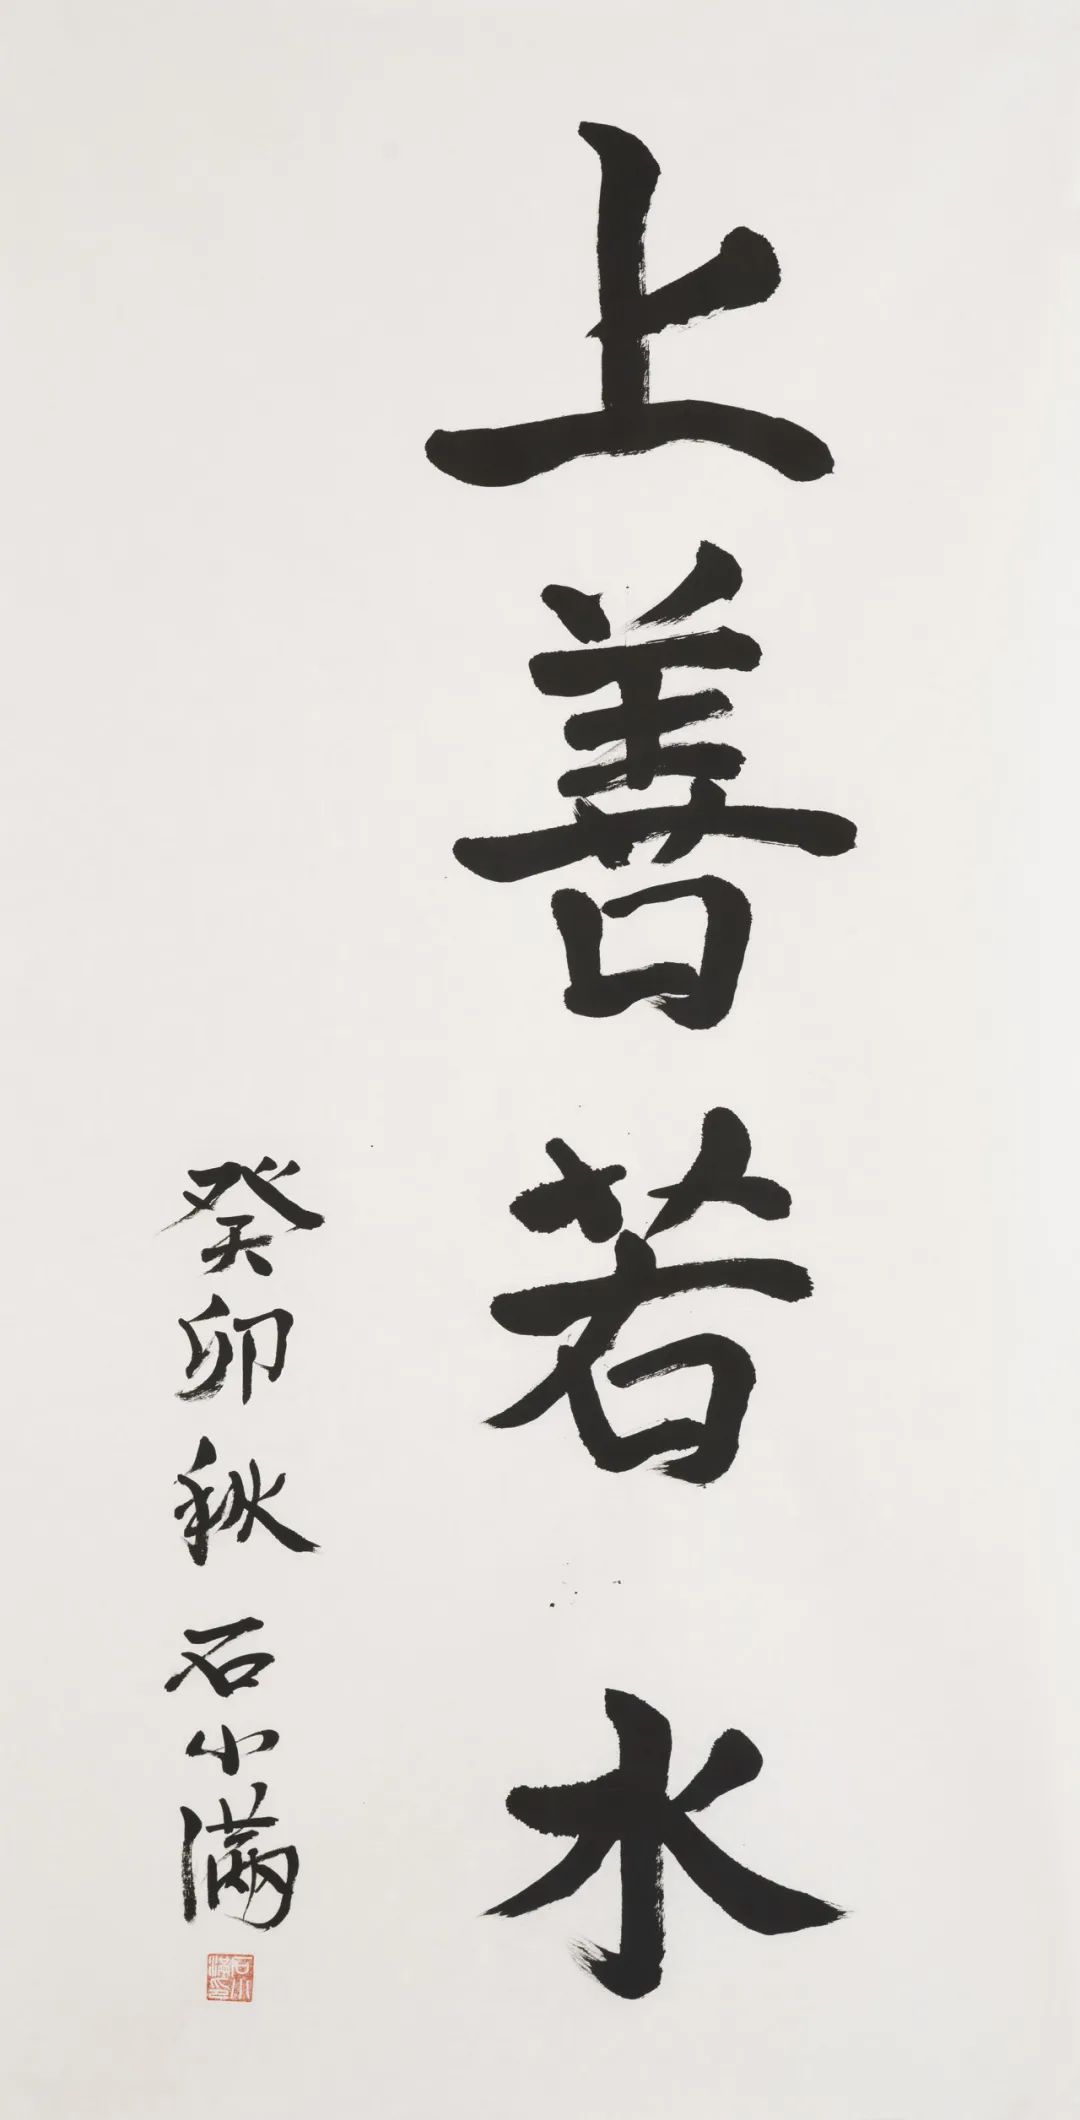 上善若水
癸卯秋 石小满
石小满印